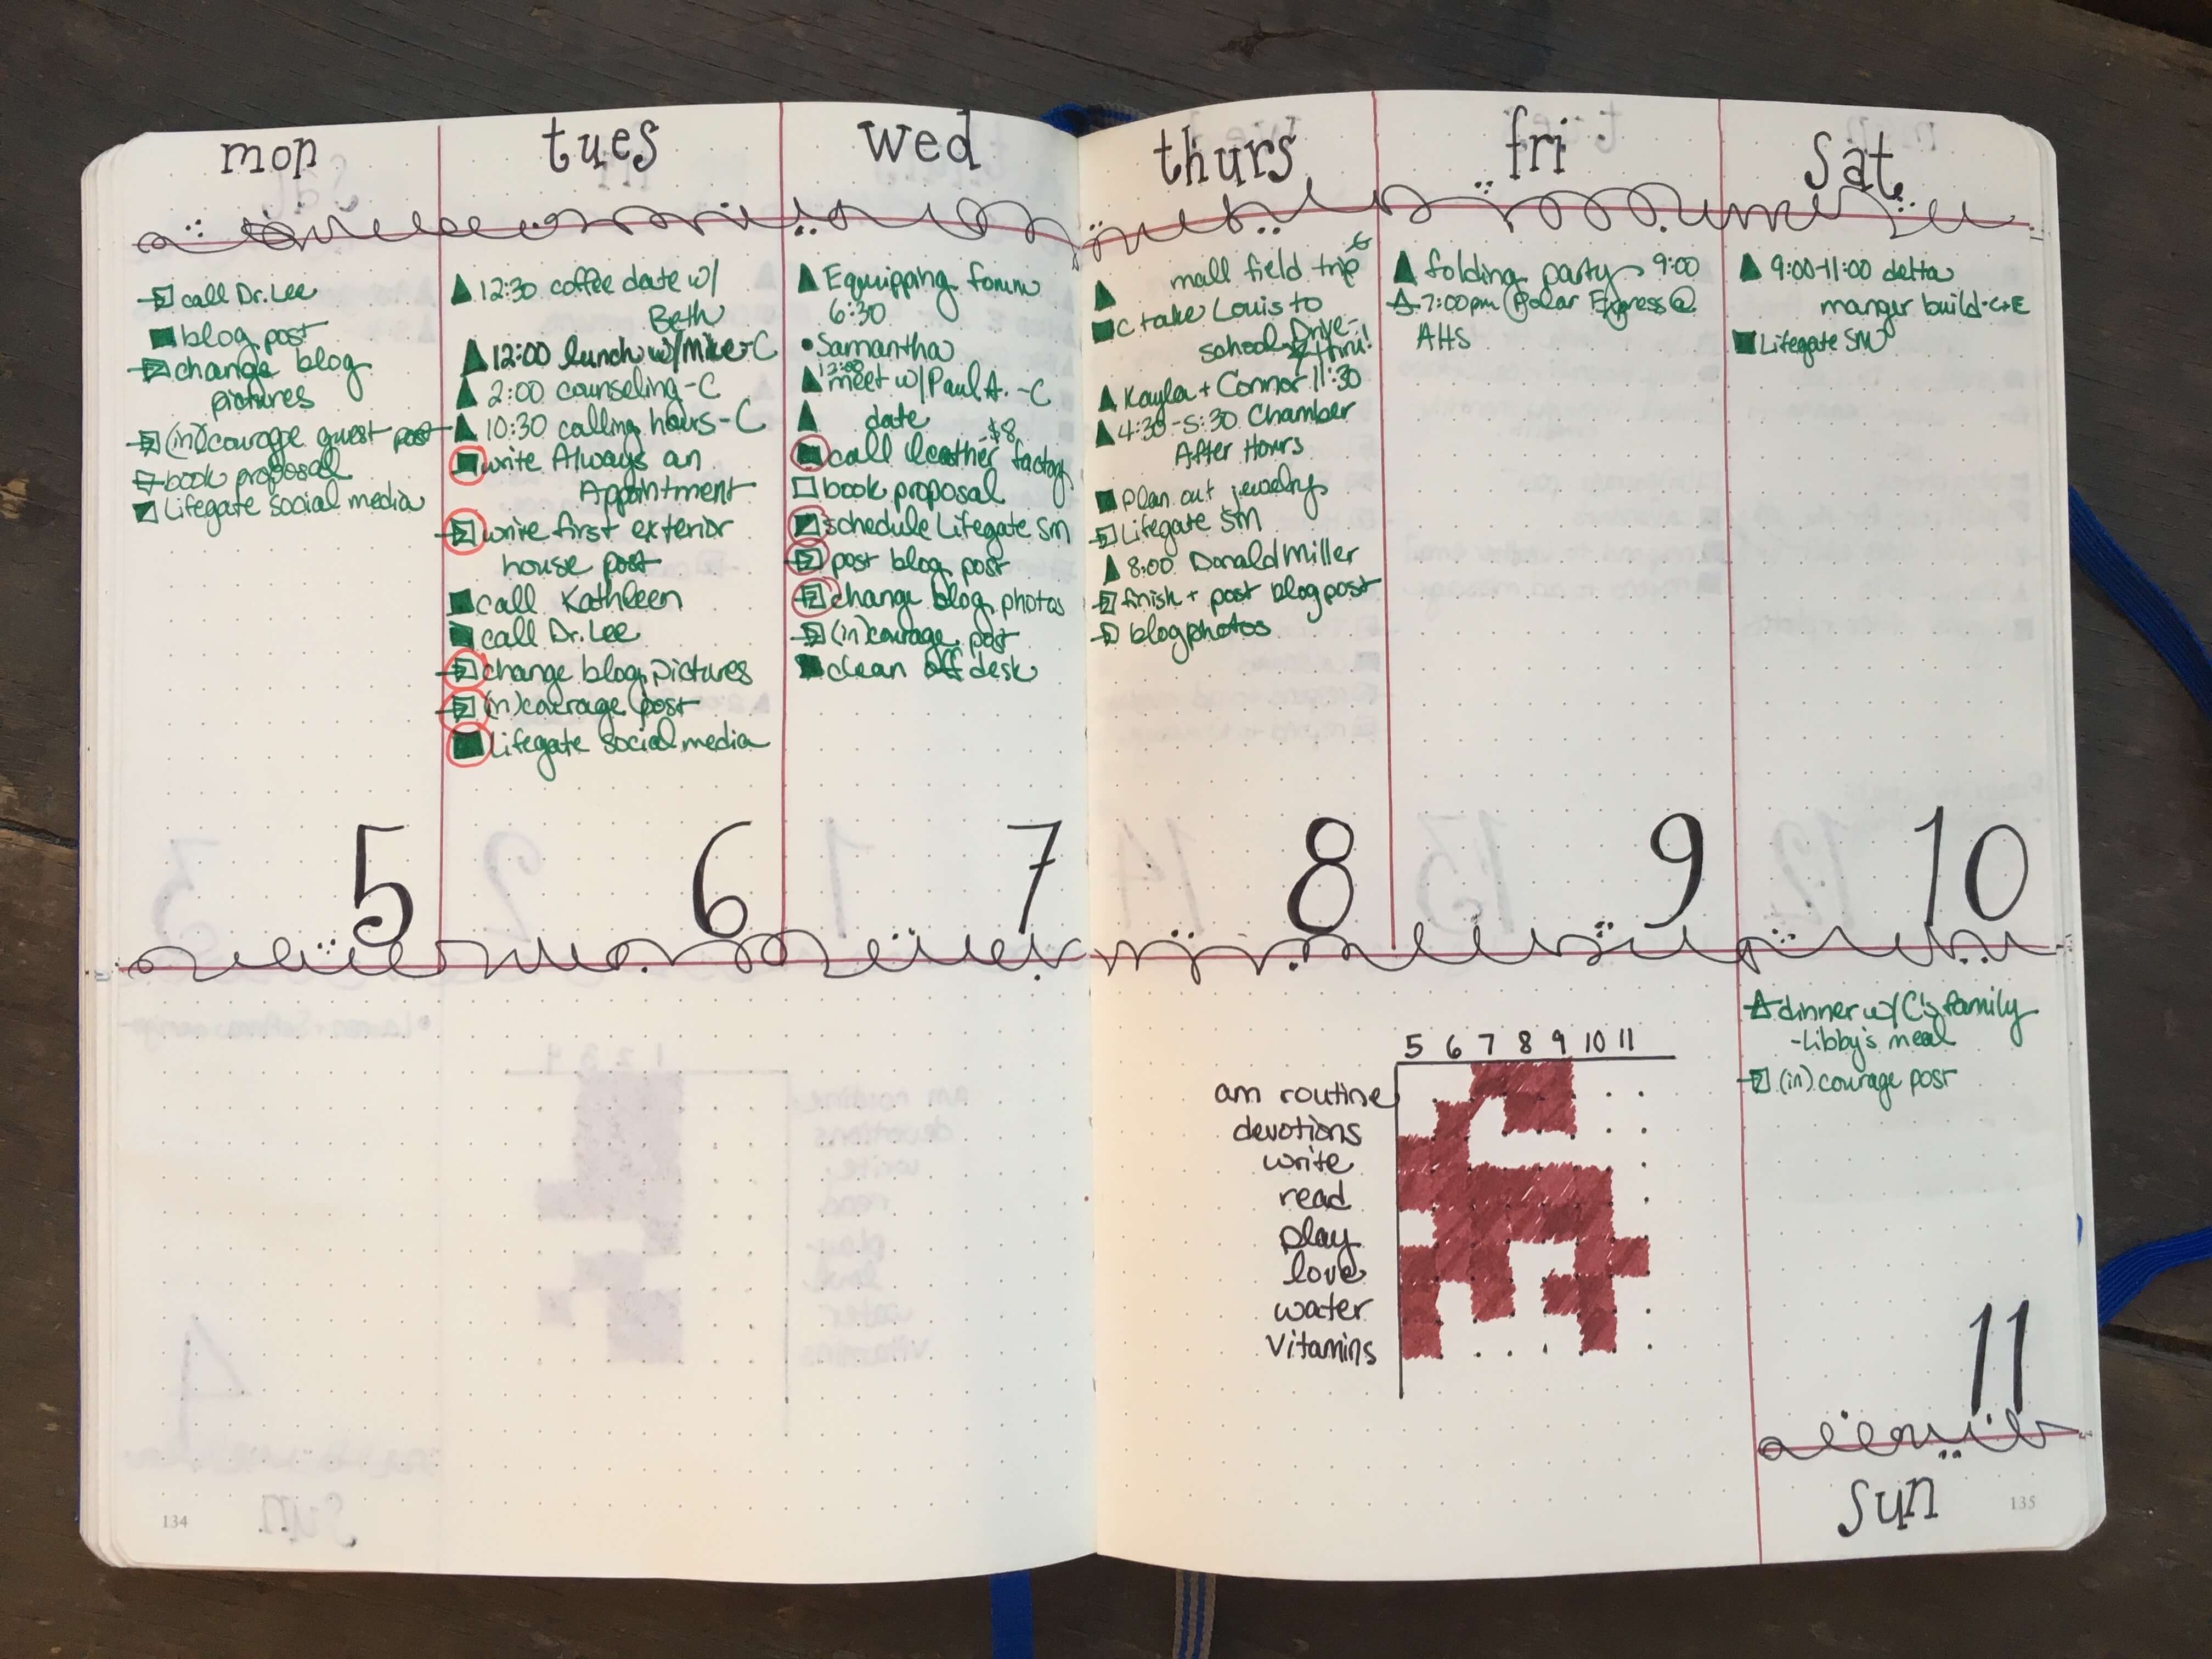 mon
call Dr. Lee
blog post
change blog
pictures
(in)courage guest post
book proposal
Lifegate social media
5
tues
12:30 coffee date w/
Beth
12:00 lunch w/Mike-C
2:00 counseling-C
10:30 calling hours-C
write Always an
Appointment
write first exterior
house post
call Kathleen
call Dr. Lee
change blog pictures
(in)courage post
Lifegate social media
6
wed
Equipping forum
6:30
•Samantha
12:00
meet w/Paul A. -C
date
$8
call leather factory
book proposal
schedule Lifegate SM
post blog post
change blog photos
(in)courage post
clean off desk
7
thurs
mall field trip
C take Louis to
school Drive-
thru!
Kayla + Connor 11:30
4:30-5:30 Chamber
After Hours
Plan out jewelry
Lifegate SM
8:00 Donald Miller
finish + post blog post
blog photos
8
fri
folding party 9:00
7:00pm Polar Express @
AHS
9
sat
9:00-11:00 delta
manger build-C+E
Lifegate SM
10
5 6 7 8 9 10 11
am routine
devotions
write
read
play
love
water
vitamins
dinner w/ C's family
-Libby's meal
(in)courage post
11
sun
134
135